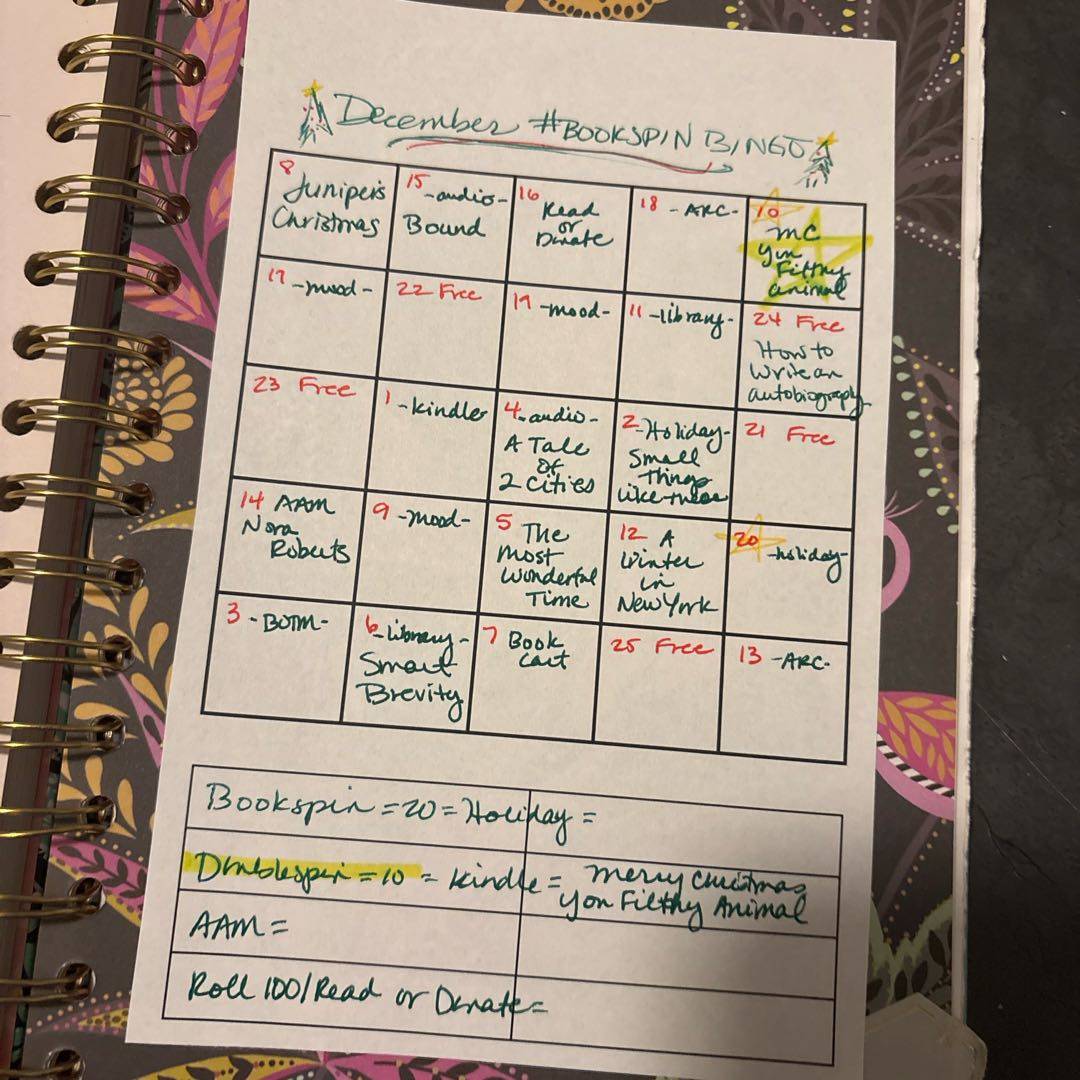 December #BOOKSPIN BINGO
8
Juniper's
Christmas
15 -audio-
Bound
16
Read
or
Donate
18 - ARC-
10
MC
you
Filthy
animal
17 -mood-
22 Free
19 -mood-
11 -library-
24 Free
How to
Write an
autobiography
23 Free
1 -kindle
4 -audio-
A Tale
of
2 Cities
2 -Holiday-
Small
Things
Like these
21 Free
14 AAM
Nora
Roberts
9 -mood-
5 The
most
wonderful
Time
12 A
Winter
in
New York
20 -holiday-
3 - BOTM-
6 -Library-
Smart
Brevity
7 Book
Cart
25 Free
13 -ARC-
Bookspin = 20 = Holiday =
Doublespin = 10 = Kindle = merry christmas
you Filthy Animal
AAM =
Roll 100/Read or Donate =